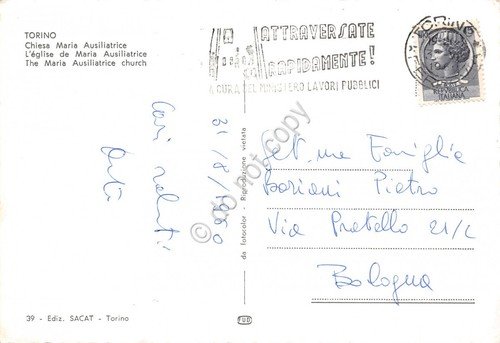 TORINO
Chiesa Maria Ausiliatrice
L'église de Maria Ausiliatrice
The Maria Ausiliatrice church
ATTRAVERSATE
RAPIDAMENTE!
A CURA DEL MINISTERO LAVORI PUBBLICI
TORINO
REPUBBLICA
ITALIANA
31/8/1960
Cari saluti
Gent.ma Famiglia
Pietro
Via Pratello 21/2
Bologna
da fotocolor - Riproduzione vietata
do not copy
39 - Ediz. SACAT - Torino